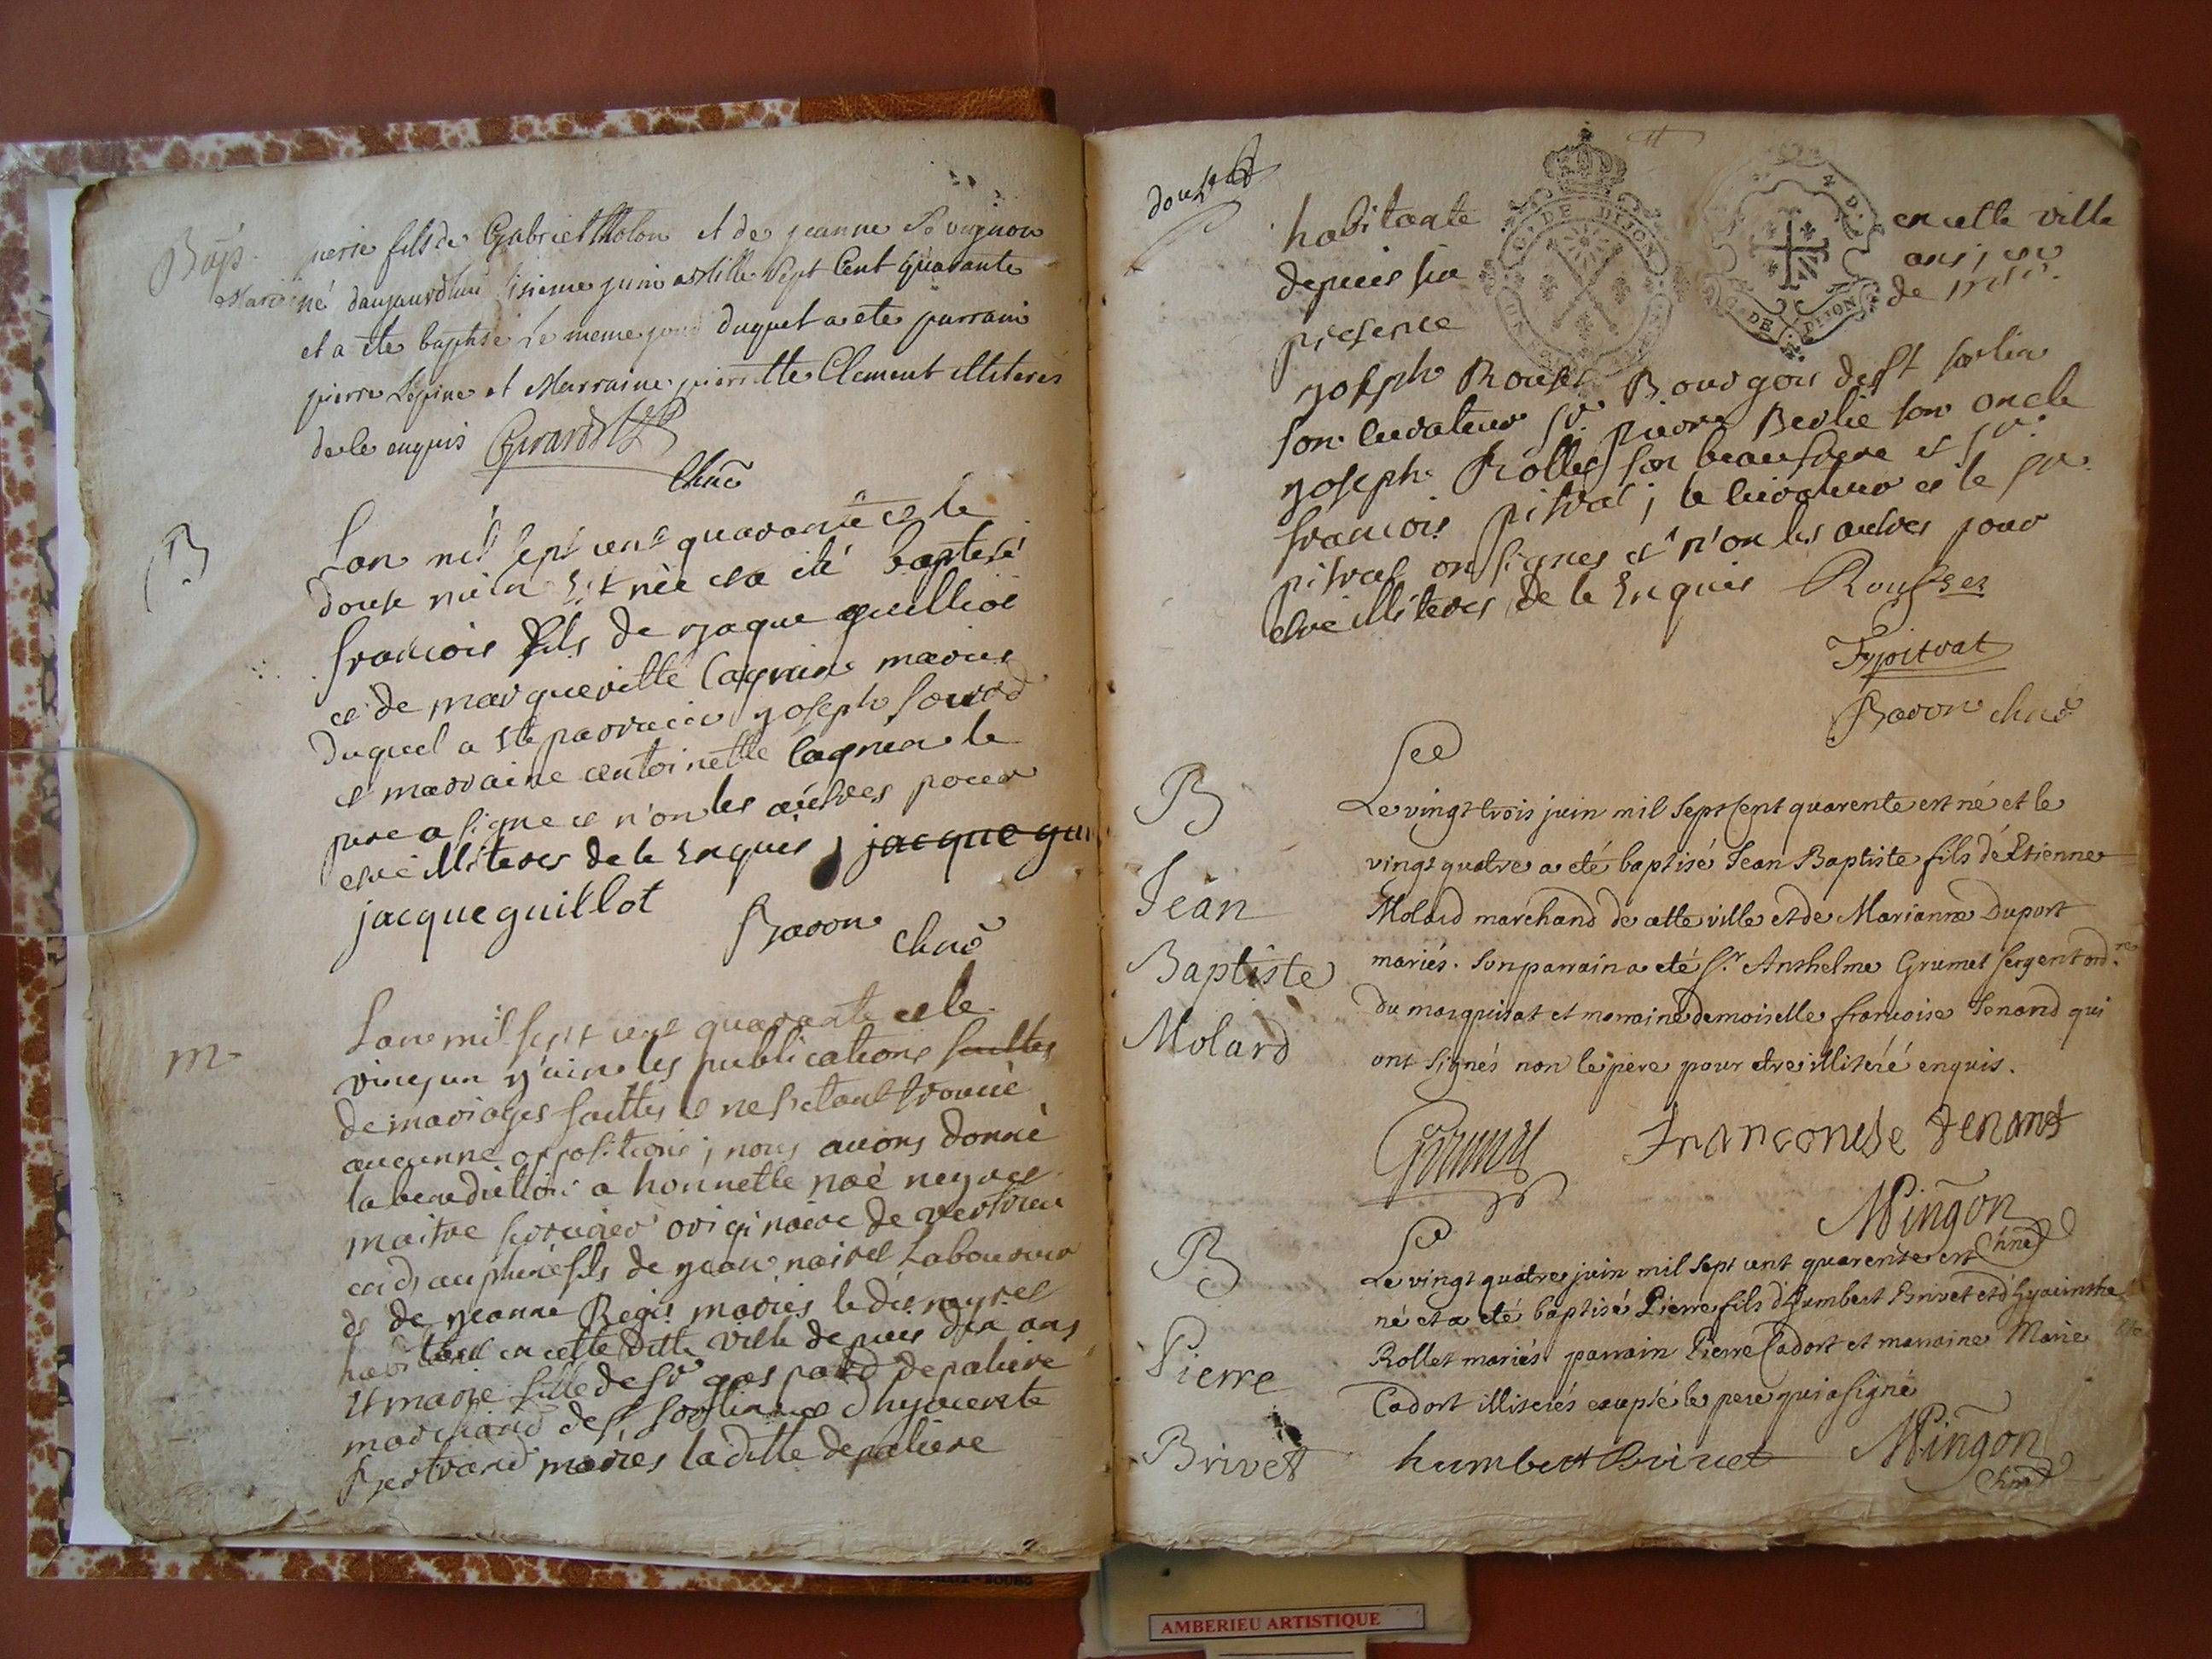 Bap. pierre fils de Gabriel Molon et de jeanne Sevignon
né daujourdhui sisieme juin Mille Sept Cent Quarante
et a ete baptisé le meme jour duquel a ete parrain
pierre Lepine et Marraine pierrette Clement illiteres
de le enquis Girard
Chne
B
Lan mil sept cent quarante et le
douse juin est née et a été baptisé
francois fils de jaque guilliot
et de margueritte Cagnin maries
duquel a ete parrain joseph
et marraine antoinette Cagnin le
pere a signe et n'on les autres pour
etre illiteres de le Enquis, jacque gui
jacque guillot
Baron
Chne
m
Lan mil sept cent quarante et le
vingt un juin les publications faittes
de mariages faittes et ne setant trouvé
aucunne opposition; nous avons donné
la benediction a honnette noé neyret
maitre serurier originaire de vertrieu
en dauphine fils de jean neiret Laboureur
et de jeanne Regis maries le dit neyret
habitant en cette ditte ville depuis dix ans
Et marie fille de Sr gaspard depaliere
marchand de St Sorlin et dhyacente
Bertrand mariés laditte depaliere
douse
habitante en cette ville
depuis six ans; en
presence de
joseph Rousset Bourgois de St sorlin
son curateur sr. pierre Berlie son oncle
joseph Rollet son beaufrere et sr.
francois pitrat; le curateur et le sr.
pitrat on signes et n'on les autres pour
etre illiteres de le Enquis Rousset
F pitrat
Baron chne
B
Jean
Baptiste
Molard
Le vingt trois juin mil sept cent quarente est né et le
vingt quatre a eté baptisé Jean Baptiste fils d'Etienne
Molard marchand de cette ville et de Marianne Duport
mariés. Son parrain a eté sr. Anthelme Grumet sergent ordre.
du marquisat et marraine demoiselle francoise Tenand qui
ont signés non le pere pour etre illiteré enquis.
Grumet
Francouese Tenant
Mingon
Chne
B
Pierre
Brivet
Le vingt quatre juin mil sept cent quarente est
né et a eté baptisé Pierre fils d'humbert Brivet et d'hyacinthe
Rollet mariés parrain Pierre Cadort et marraine Marie
Cadort illiterés excepté le pere qui a signé
humbert Brivet
Mingon
Chne
DE DIJON
DE DIJON
AMBERIEU ARTISTIQUE